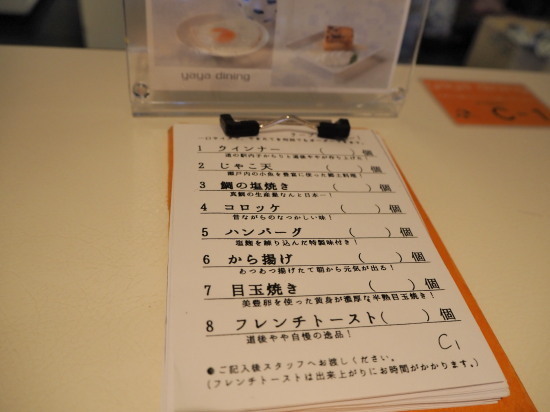 yaya dining
C-1
1 ウインナー ( )個
2 じゃこ天 ( )個
瀬戸内の小魚を豊富に使った郷土料理!
3 鯛の塩焼き ( )個
真鯛の生産量なんと日本一!
4 コロッケ ( )個
昔ながらのなつかしい味!
5 ハンバーグ ( )個
塩麹を練り込んだ特製味付き!
6 から揚げ ( )個
あつあつ揚げたて朝から元気が出る!
7 目玉焼き ( )個
美豊卵を使った黄身が濃厚な半熟目玉焼き!
8 フレンチトースト( )個
道後やや自慢の逸品!
C1
●ご記入後スタッフへお渡しください。
(フレンチトーストは出来上がりにお時間がかかります。)